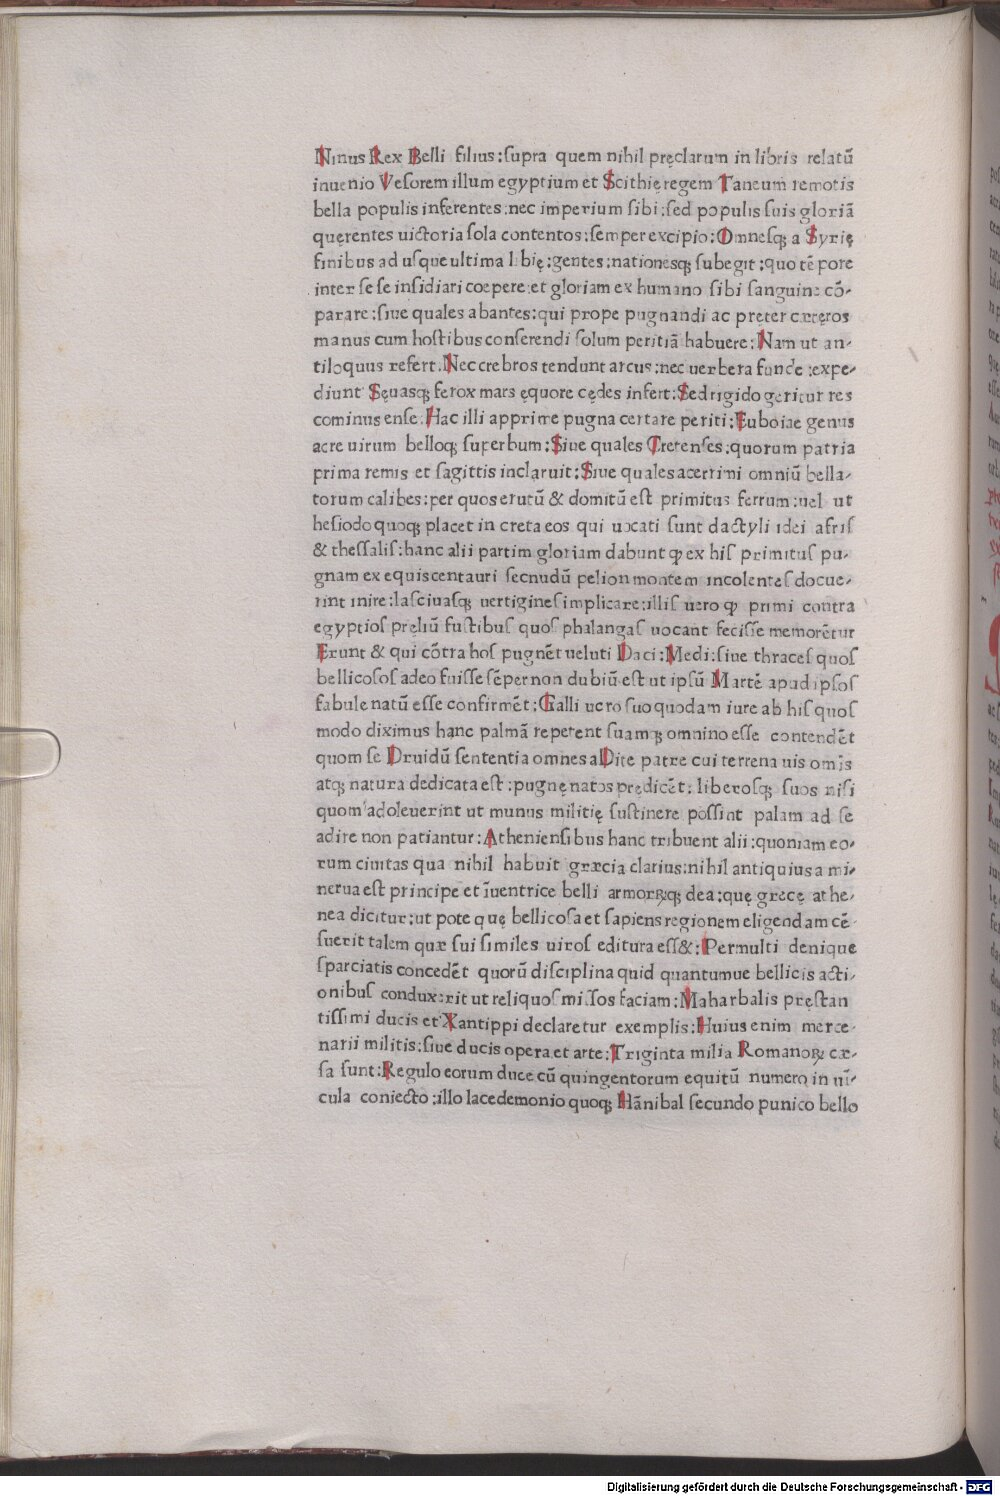 Ninus Rex Belli filius:supra quem nihil pręclarum in libris relatū
inuenio Vesorem illum egyptium et Scithię regem Taneum remotis
bella populis inferentes:nec imperium sibi:sed populis suis gloriā
quęrentes uictoria sola contentos:semper excipio:Omnesqꝫ a Syrię
finibus ad usque ultima libię:gentes:nationesqꝫ subegit:quo tēpore
inter se se insidiari coepere:et gloriam ex humano sibi sanguine cō-
parare:siue quales abantes:qui prope pugnandi ac pręter cæteros
manus cum hostibus conserendi solum peritiā habuere:Nam ut an-
tiloquus refert.Nec crebros tendunt arcus:nec uerbera funde:expe-
diunt Sęuasqꝫ ferox mars ęquore cędes infert:Sed rigido geritur res
cominus ense.Hac illi apprime pugna certare periti:Euboiae genus
acre uirum belloqꝫ superbum:Siue quales Cretenses:quorum patria
prima remis et sagittis inclaruit:Siue quales acerrimi omniū bella-
torum calibes:per quos erutū & domitū est primitus ferrum:uel ut
hesiodo quoqꝫ placet in creta eos qui uocati sunt dactyli idei afris
& thessalis:hanc alii partim gloriam dabunt ꝙ ex his primitus pu-
gnam ex equis centauri secnudū pelion montem incolentes docue-
rint inire:lasciuasqꝫ uertigines implicare:illis uero ꝙ primi contra
egyptios pręliū fustibus quos phalangas uocant fecisse memorētur
Erunt & qui cōtra hos pugnēt ueluti Daci:Medi:siue thraces quos
bellicosos adeo fuisse sēper non dubiū est ut ipsū Martē apud ipsos
fabule natū esse confirmēt:Galli uero suo quodam iure ab his quos
modo diximus hanc palmā repetent suamqꝫ omnino esse contendēt
quom se Druidū sententia omnes a Dite patre cui terrena uis omis
atqꝫ natura dedicata est:pugnę natos prędicēt:liberosqꝫ suos nisi
quom adoleuerint ut munus militię sustinere possint palam ad se
adire non patiantur:Atheniensibus hanc tribuent alii:quoniam eo-
rum ciuitas qua nihil habuit græcia clarius:nihil antiquius a mi-
nerua est principe et īuentrice belli armorꝝqꝫ dea:quę grecę athe-
nea dicitur:ut pote quę bellicosa et sapiens regionem eligendam cē-
suerit talem quæ sui similes uiros editura ess&:Permulti denique
sparciatis concedēt quorū disciplina quid quantumue bellicis acti-
onibus conduxerit ut reliquos missos faciam:Maharbalis pręstan
tissimi ducis et Xantippi declaretur exemplis:Huius enim merce-
narii militis:siue ducis opera et arte:Triginta milia Romanoꝝ cæ-
sa sunt:Regulo eorum duce cū quingentorum equitū numero in uī-
cula coniecto:illo lacedemonio quoqꝫ Hānibal secundo punico bello
Digitalisierung gefördert durch die Deutsche Forschungsgemeinschaft - DFG